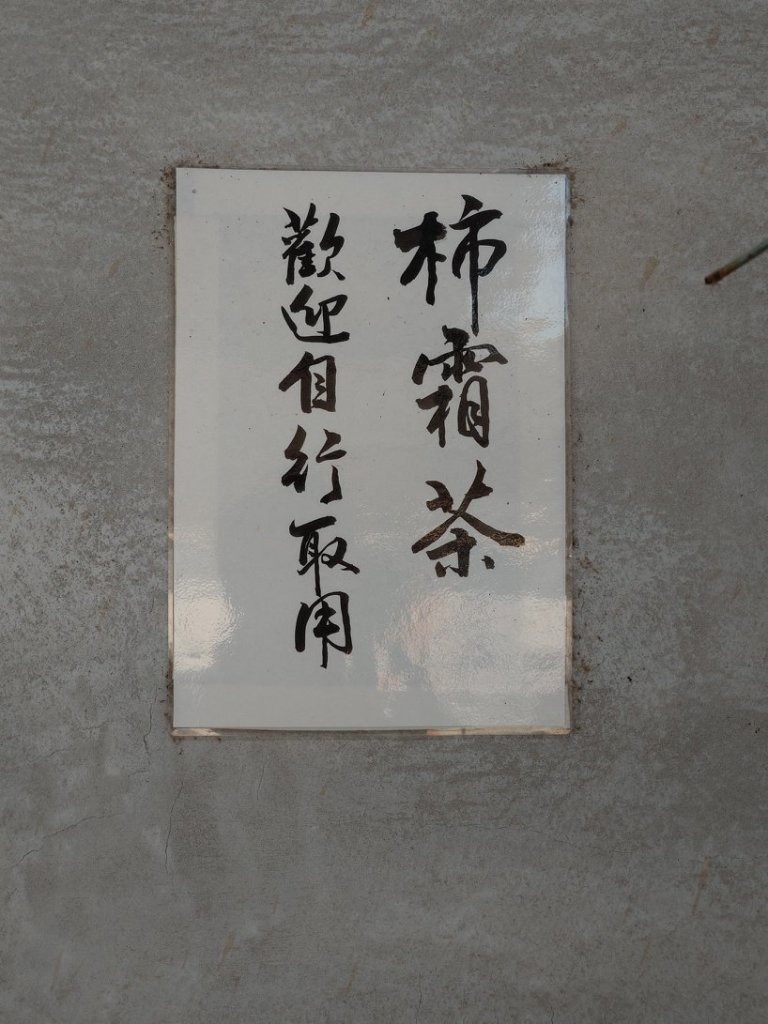 柿霜茶
歡迎自行取用